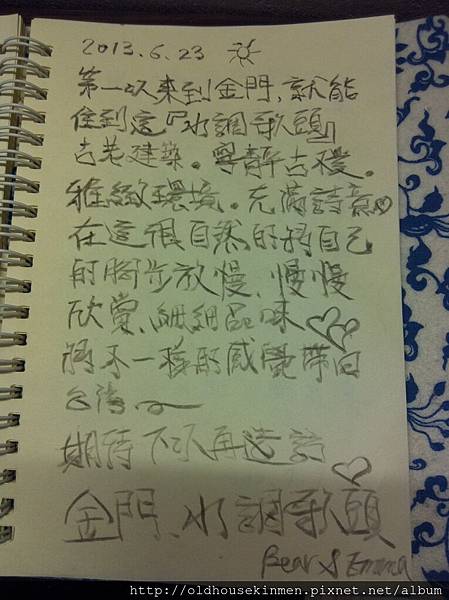 2013.6.23
第一次來到金門,就能
住到這『水調歌頭』
古老建築。寧靜古樸。
雅緻環境。充滿詩意
在這很自然的將自己
的腳步放慢、慢慢
欣賞、細細品味
將不一樣的感覺帶回
台灣~
期待下次再造訪
金門、水調歌頭
Bear & Emma
http://oldhousekinmen.pixnet.net/album